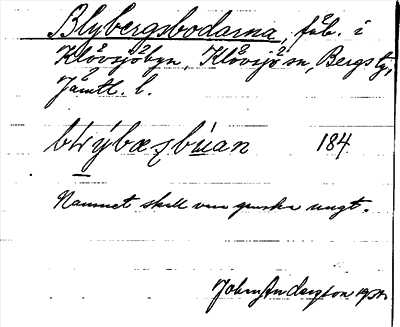 Blybergsbodarna, fäb. i
Klövsjöbyn, Klövsjö sn, Bergs tg,
Jämtl. l.
184
Namnet skall vara ganska ungt.
John Andersson